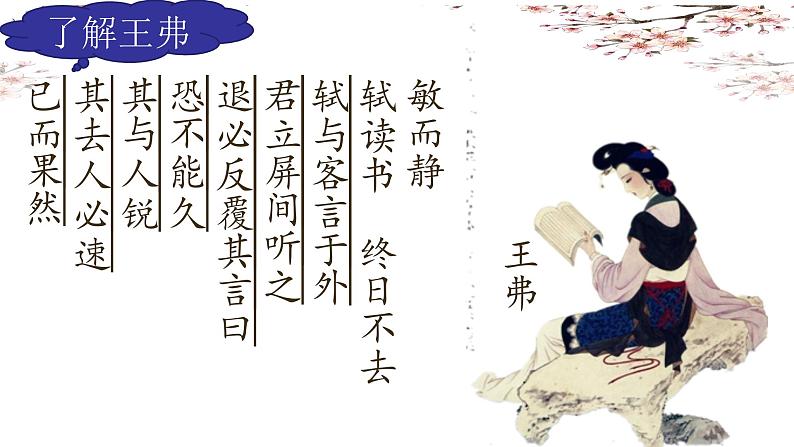 了解王弗
敏而静
轼读书 终日不去
轼与客言于外
君立屏间听之
退必反覆其言曰
恐不能久
其与人锐
其去人必速
已而果然
王弗